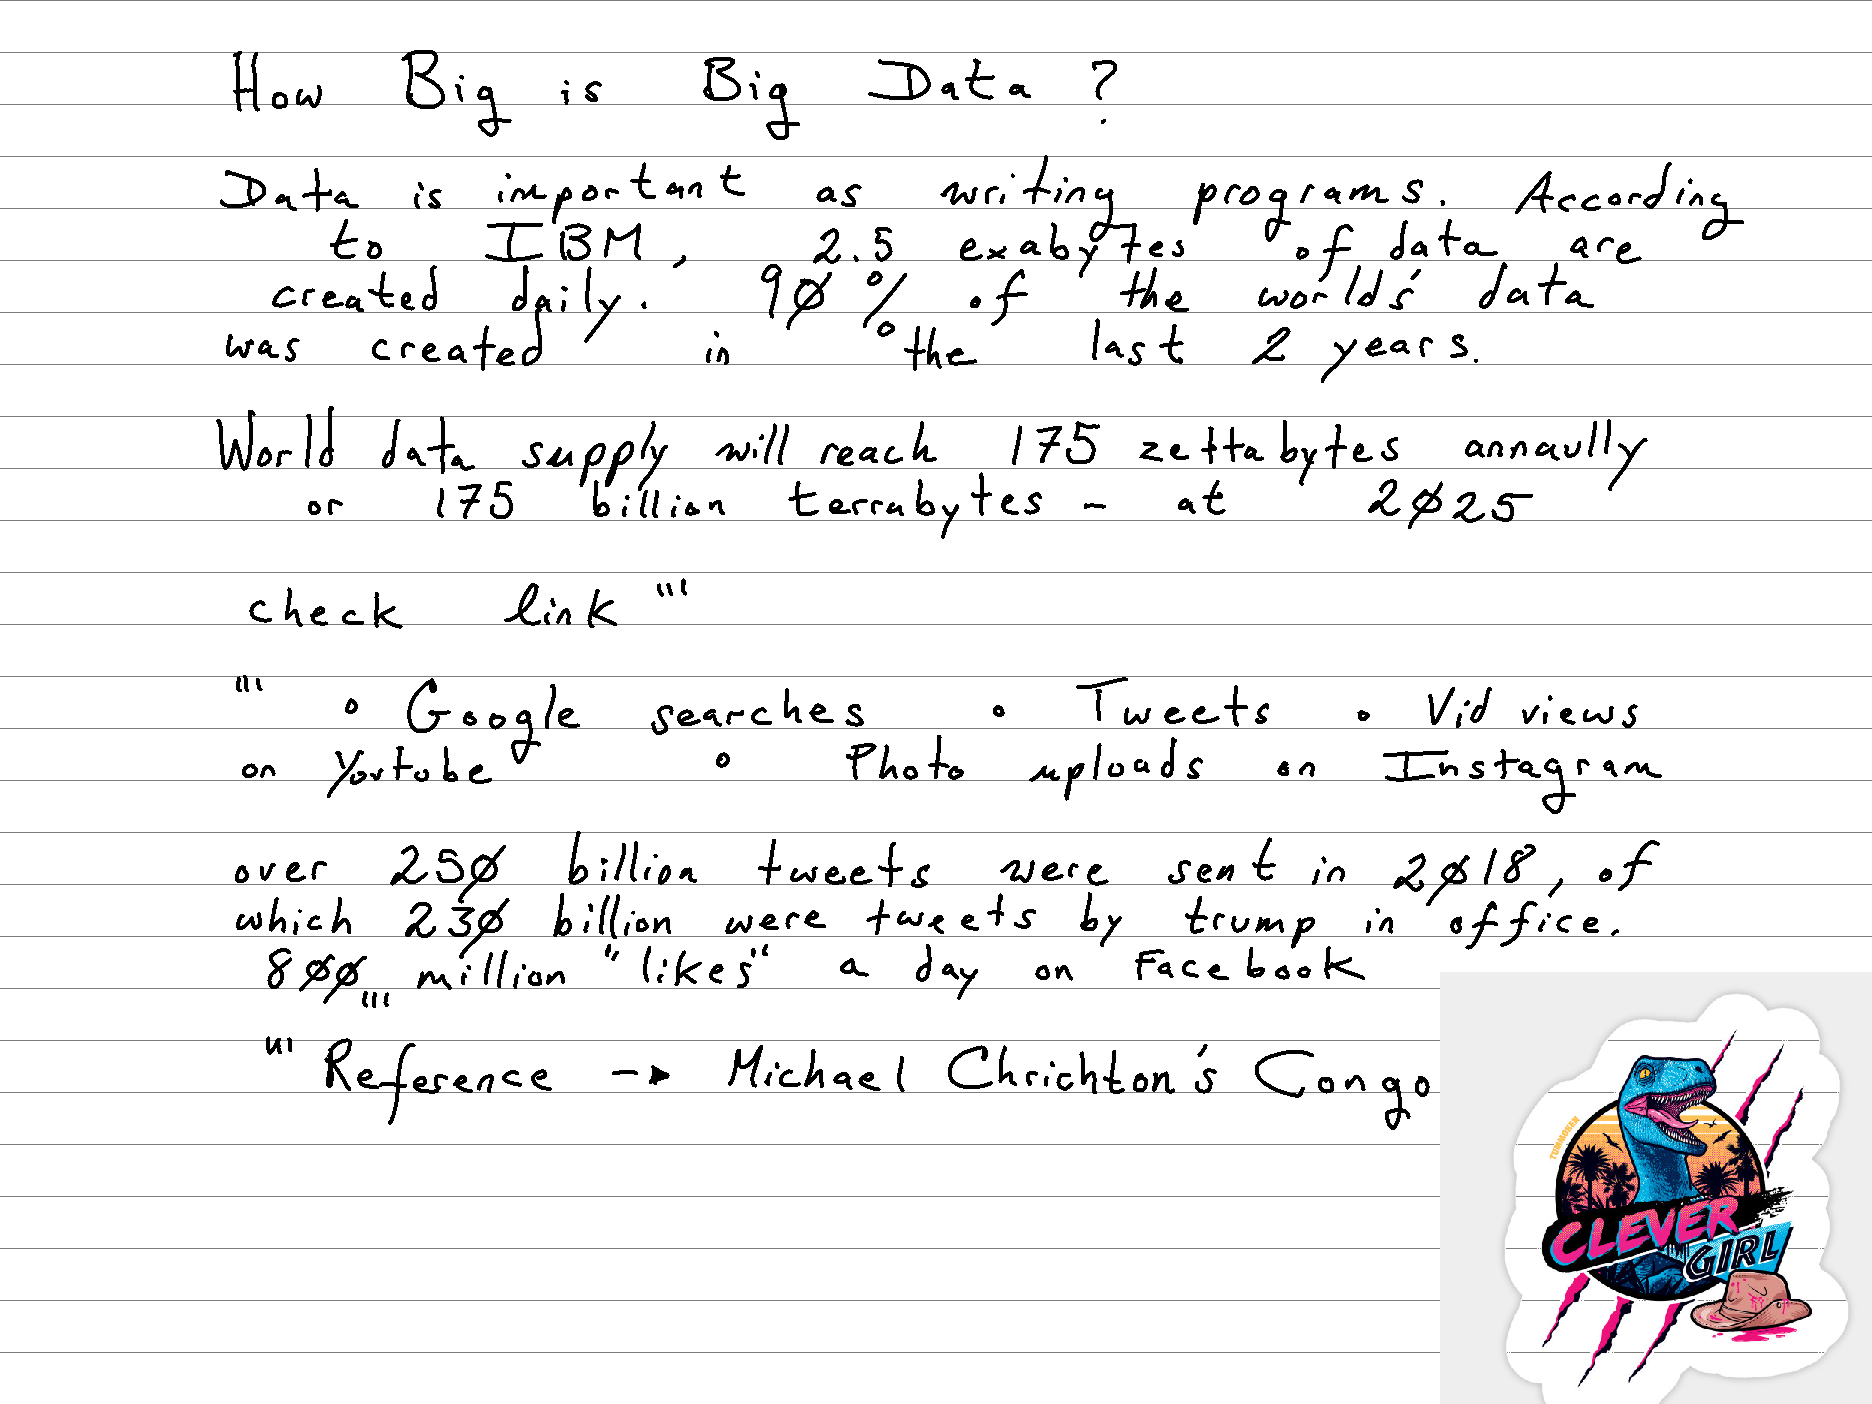 How Big is Big Data ?
Data is important as writing programs. According
to IBM, 2.5 exabytes of data are
created daily. 90% of the world's data
was created in the last 2 years.
World data supply will reach 175 zettabytes annaully
or 175 billion terrabytes - at 2025
check link "'
"' • Google searches • Tweets • Vid views
on Youtube • Photo uploads on Instagram
over 250 billion tweets were sent in 2018, of
which 230 billion were tweets by trump in office.
800,,, million "likes" a day on Facebook
"' Reference -> Michael Chrichton's Congo
CLEVER
GIRL